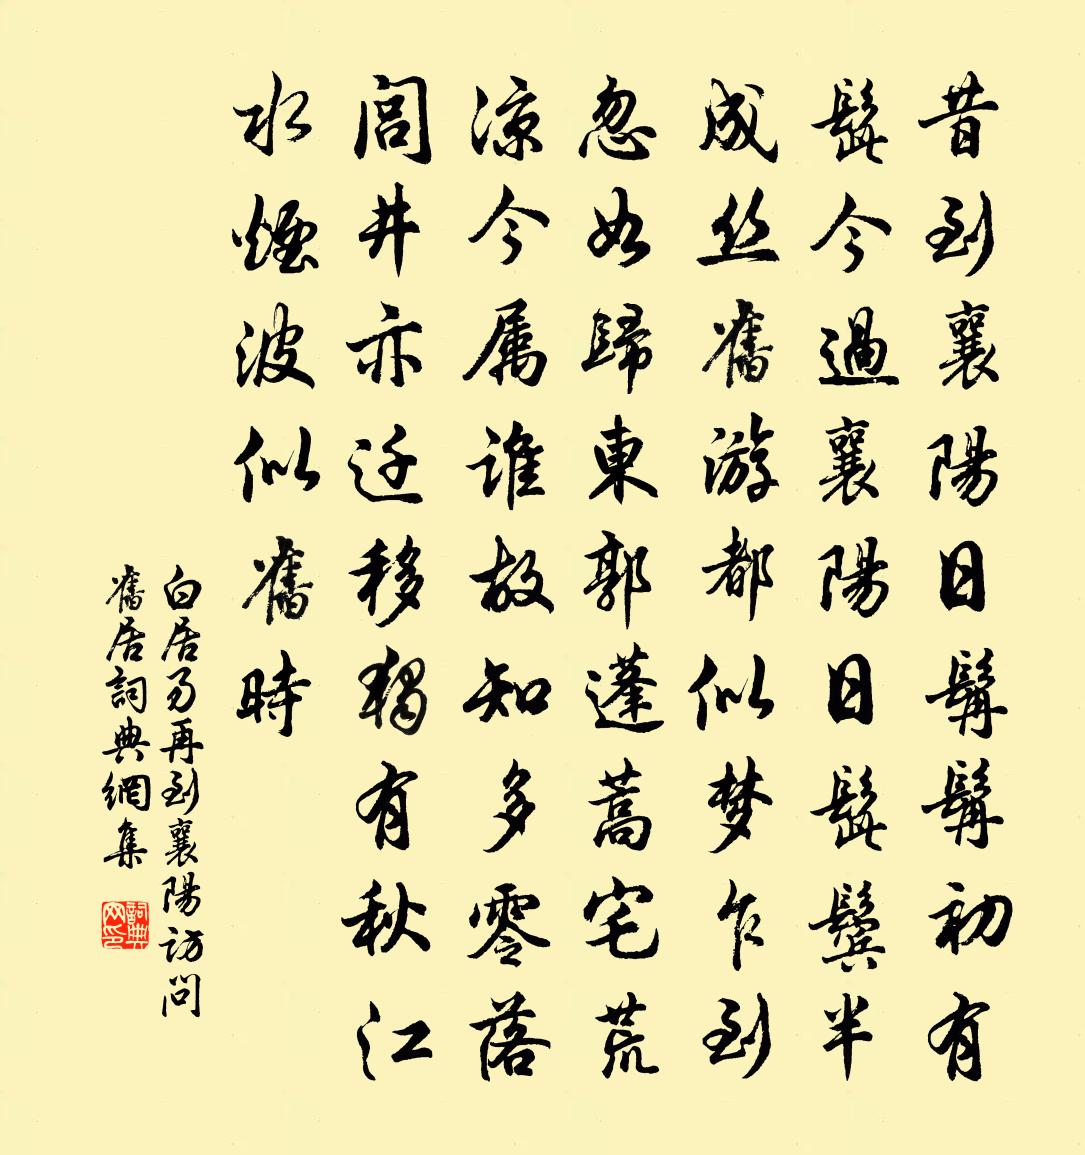 昔到襄陽日髯髯初有
髭今過襄陽日髭鬢半
成丝舊游都似梦乍到
忽如歸東郭蓬蒿宅荒
涼今属誰故知多零落
閭井亦迁移獨有秋江
水煙波似舊時
白居易再到襄陽訪問
舊居詞典網集
詞典网印